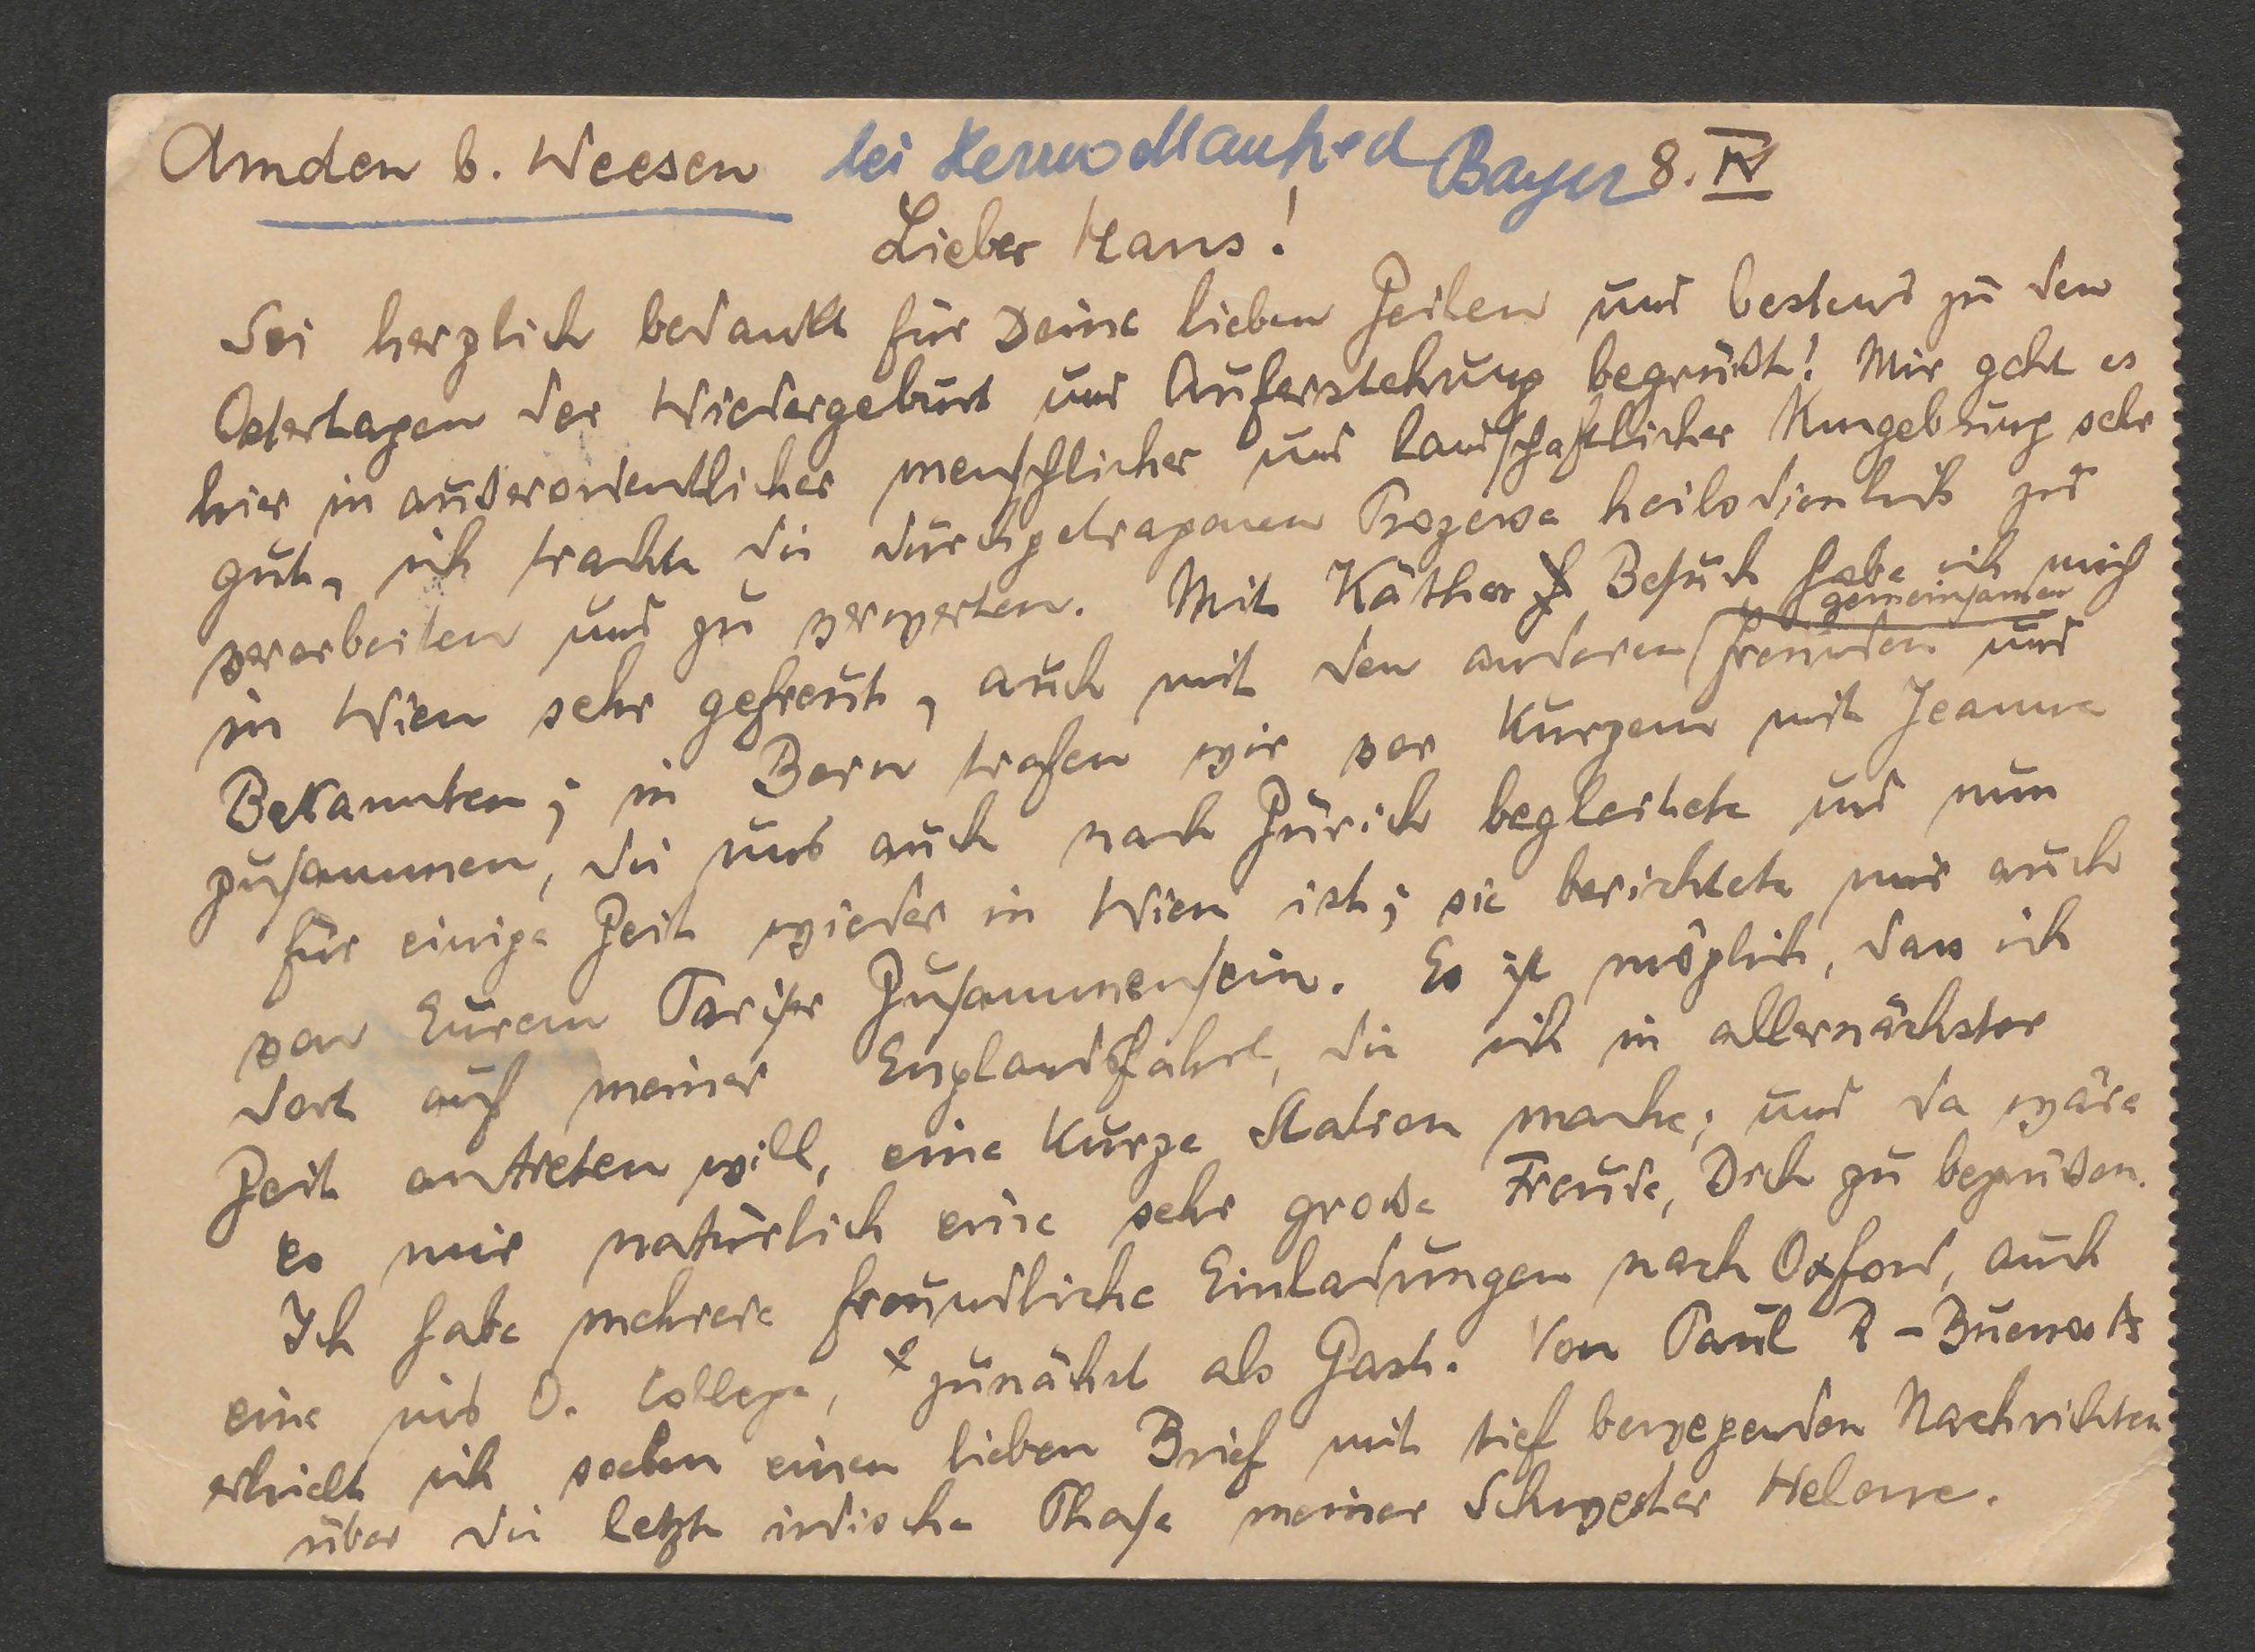 Amden b. Weesen bei Herrn Manfred Bayer 8. IV
Lieber Hans!
Sei herzlich bedankt für Deine lieben Zeilen und bestens zu den
Ostertagen der Wiedergeburt und Auferstehung begrüßt! Mir geht es
hier in außerordentlicher menschlicher und landschaftlicher Umgebung sehr
gut, ich trachte die durchgetragenen Prozesse heilsdienlich zu
verarbeiten und zu verwerten. Mit Käthes Besuch habe ich mich
in Wien sehr gefreut, auch mit den anderen gemeinsamen Freunden und
Bekannten; in Bern trafen wir vor Kurzem mit Jeanne
zusammen, die uns auch nach Zürich begleitete und nun
für einige Zeit wieder in Wien ist; sie berichtete mir auch
von Eurem Pariser Zusammensein. Es ist möglich, dass ich
dort auf meiner Englandfahrt, die ich in allernächster
Zeit antreten will, eine kurze Station mache; und da wäre
es mir natürlich eine sehr große Freude, Dich zu begrüßen.
Ich habe mehrere freundliche Einladungen nach Oxford, auch
eine ins O. College, zunächst als Gast. Von Paul R - Buenos A
erhielt ich soeben einen lieben Brief mit tief bewegenden Nachrichten
über die letzte irdische Phase meiner Schwester Helene.